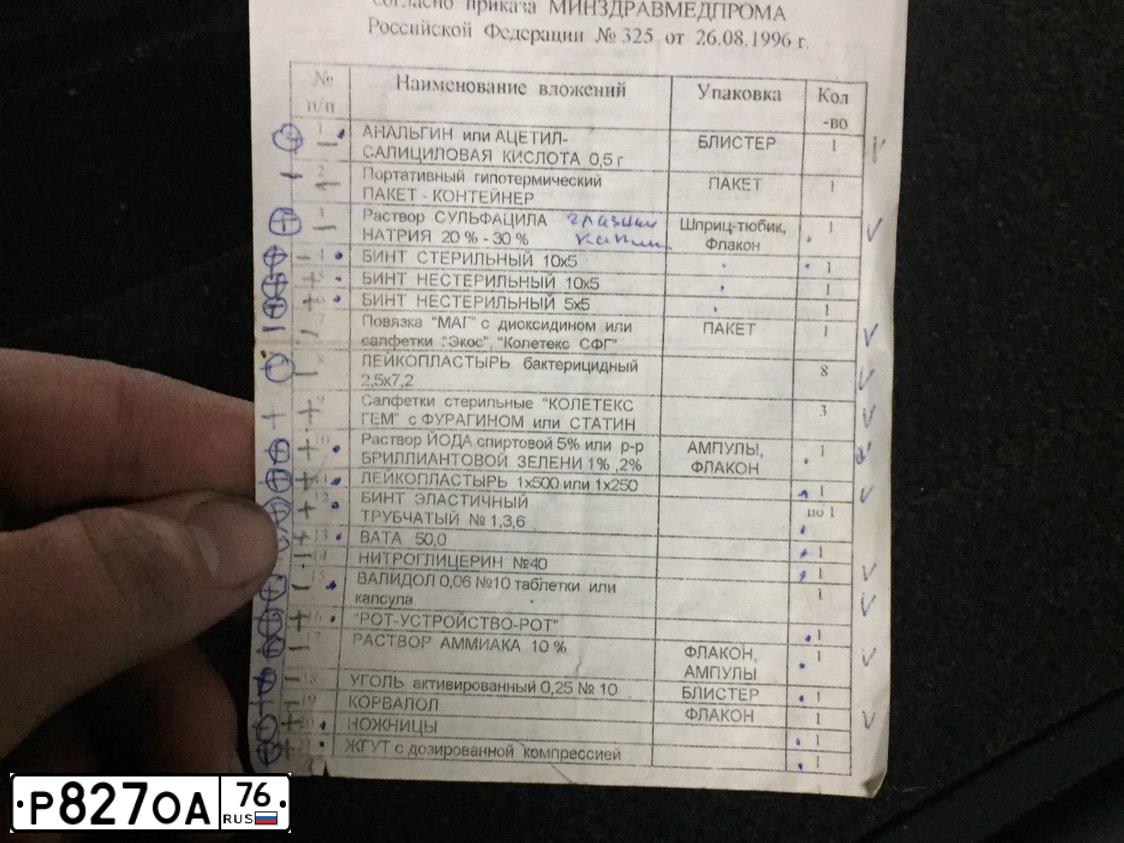 согласно приказа МИНЗДРАВМЕДПРОМА
Российской Федерации № 325 от 26.08.1996 г.
№ п/п Наименование вложений Упаковка Кол-во
1 АНАЛЬГИН или АЦЕТИЛ-
САЛИЦИЛОВАЯ КИСЛОТА 0,5 г БЛИСТЕР 1
2 Портативный гипотермический
ПАКЕТ - КОНТЕЙНЕР ПАКЕТ 1
3 Раствор СУЛЬФАЦИЛА глазные Шприц-тюбик, 1
НАТРИЯ 20 % - 30 % капли Флакон
4 БИНТ СТЕРИЛЬНЫЙ 10х5 1
5 БИНТ НЕСТЕРИЛЬНЫЙ 10х5 1
6 БИНТ НЕСТЕРИЛЬНЫЙ 5х5 1
7 Повязка "МАГ" с диоксидином или ПАКЕТ 1
салфетки "Экос", "Колетекс СФГ"
8 ЛЕЙКОПЛАСТЫРЬ бактерицидный 8
2,5х7,2
9 Салфетки стерильные "КОЛЕТЕКС 3
ГЕМ" с ФУРАГИНОМ или СТАТИН
10 Раствор ЙОДА спиртовой 5% или р-р АМПУЛЫ, 1
БРИЛЛИАНТОВОЙ ЗЕЛЕНИ 1% ,2% ФЛАКОН
11 ЛЕЙКОПЛАСТЫРЬ 1х500 или 1х250 1
12 БИНТ ЭЛАСТИЧНЫЙ по 1
ТРУБЧАТЫЙ № 1,3,6
13 ВАТА 50,0 1
14 НИТРОГЛИЦЕРИН №40 1
15 ВАЛИДОЛ 0,06 №10 таблетки или 1
капсула
16 "РОТ-УСТРОЙСТВО-РОТ" 1
17 РАСТВОР АММИАКА 10 % ФЛАКОН, 1
АМПУЛЫ
18 УГОЛЬ активированный 0,25 № 10 БЛИСТЕР 1
19 КОРВАЛОЛ ФЛАКОН 1
20 НОЖНИЦЫ 1
21 ЖГУТ с дозированной компрессией 1
Р827ОА 76
RUS